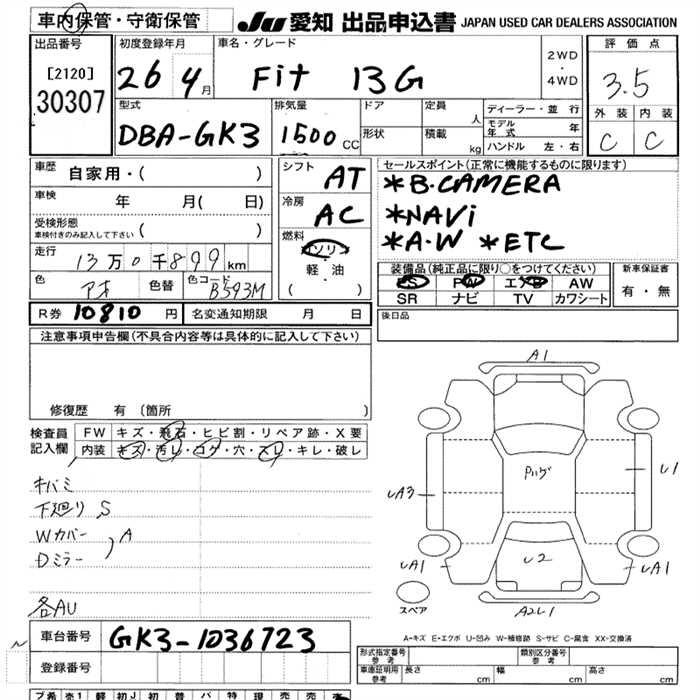 車内保管・守衛保管
JU 愛知 出品申込書 JAPAN USED CAR DEALERS ASSOCIATION
出品番号
[2120]
30307
初度登録年月
26 4月
車名・グレード
Fit 13G
2WD
・
4WD
評価点
3.5
外装 内装
C C
型式
DBA-GK3
排気量
1500 CC
ドア
形状
定員 人
積載 kg
ディーラー・並行
モデル年式 年
ハンドル 左・右
車歴
自家用・( )
車検
年 月( 日)
受検形態
車検付きのみ記入して下さい ( )
走行
13万0千899km
色
アオ
色替
色コード
B593M
シフト
AT
冷房
AC
燃料
ガソリン
軽・油
( )
セールスポイント(正常に機能するものに限ります)
*B.CAMERA
*NAVi
*A.W *ETC
装備品(純正品に限り○をつけてください)
PS PW エアB AW
SR ナビ TV カワシート
新車保証書
有・無
後日品
R券 10810 円 名変通知期限 月 日
注意事項申告欄(不具合内容等は具体的に記入して下さい)
修復歴 有 (箇所 )
検査員記入欄
FW キズ・飛石・ヒビ割・リペア跡・X要
内装 キズ・汚レ・コゲ・穴・スレ・キレ・破レ
キバミ
下廻り S
Wカバー
Dミラー
A
各AU
A1
Pハゲ
U1
UA3
U2
UA1
UA1
A2U1
スペア
A-キズ E-エクボ U-凹み W-補修跡 S-サビ C-腐食 XX-交換済
車台番号 GK3-1036723
登録番号
形式指定番号 参考
類別区分番号 参考
車庫証明用 参考 長さ cm 幅 cm 高さ cm